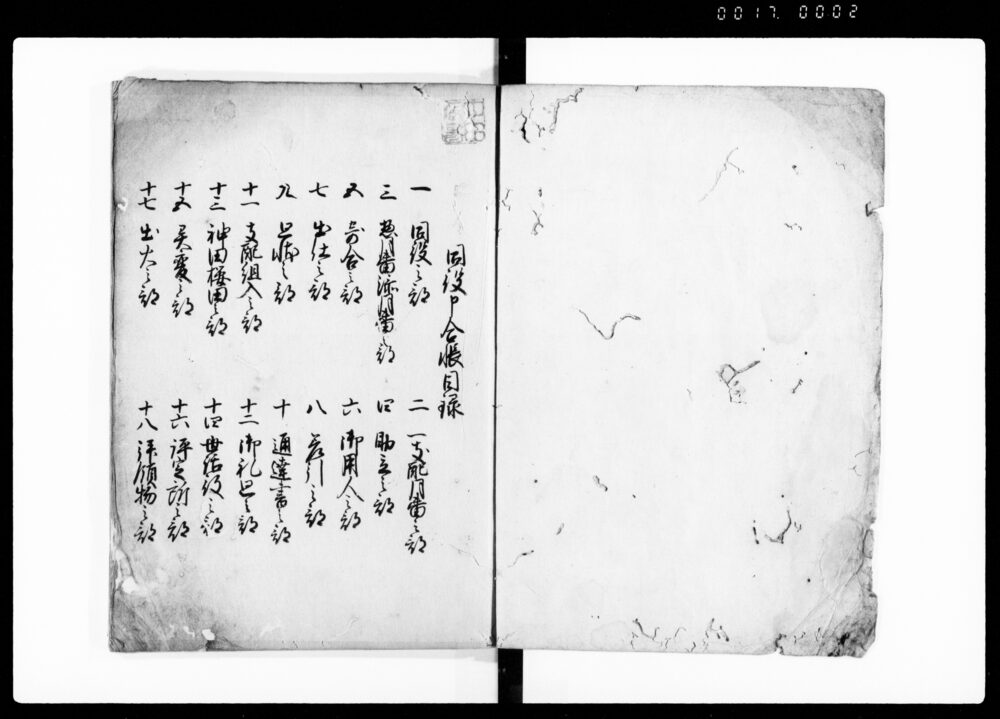 0017. 0002
同役申合帳目録
一 同役之部
二 一支配月番之部
三 惣月番添月番之部
四 助之部
五 寄合之部
六 御用人之部
七 出仕之部
八 差引之部
九 上ケ之部
十 通達書之部
十一 支配組入之部
十二 御礼之部
十三 神田橋田之部
十四 世話役之部
十五 異変之部
十六 評定所之部
十七 出火之部
十八 拝領物之部